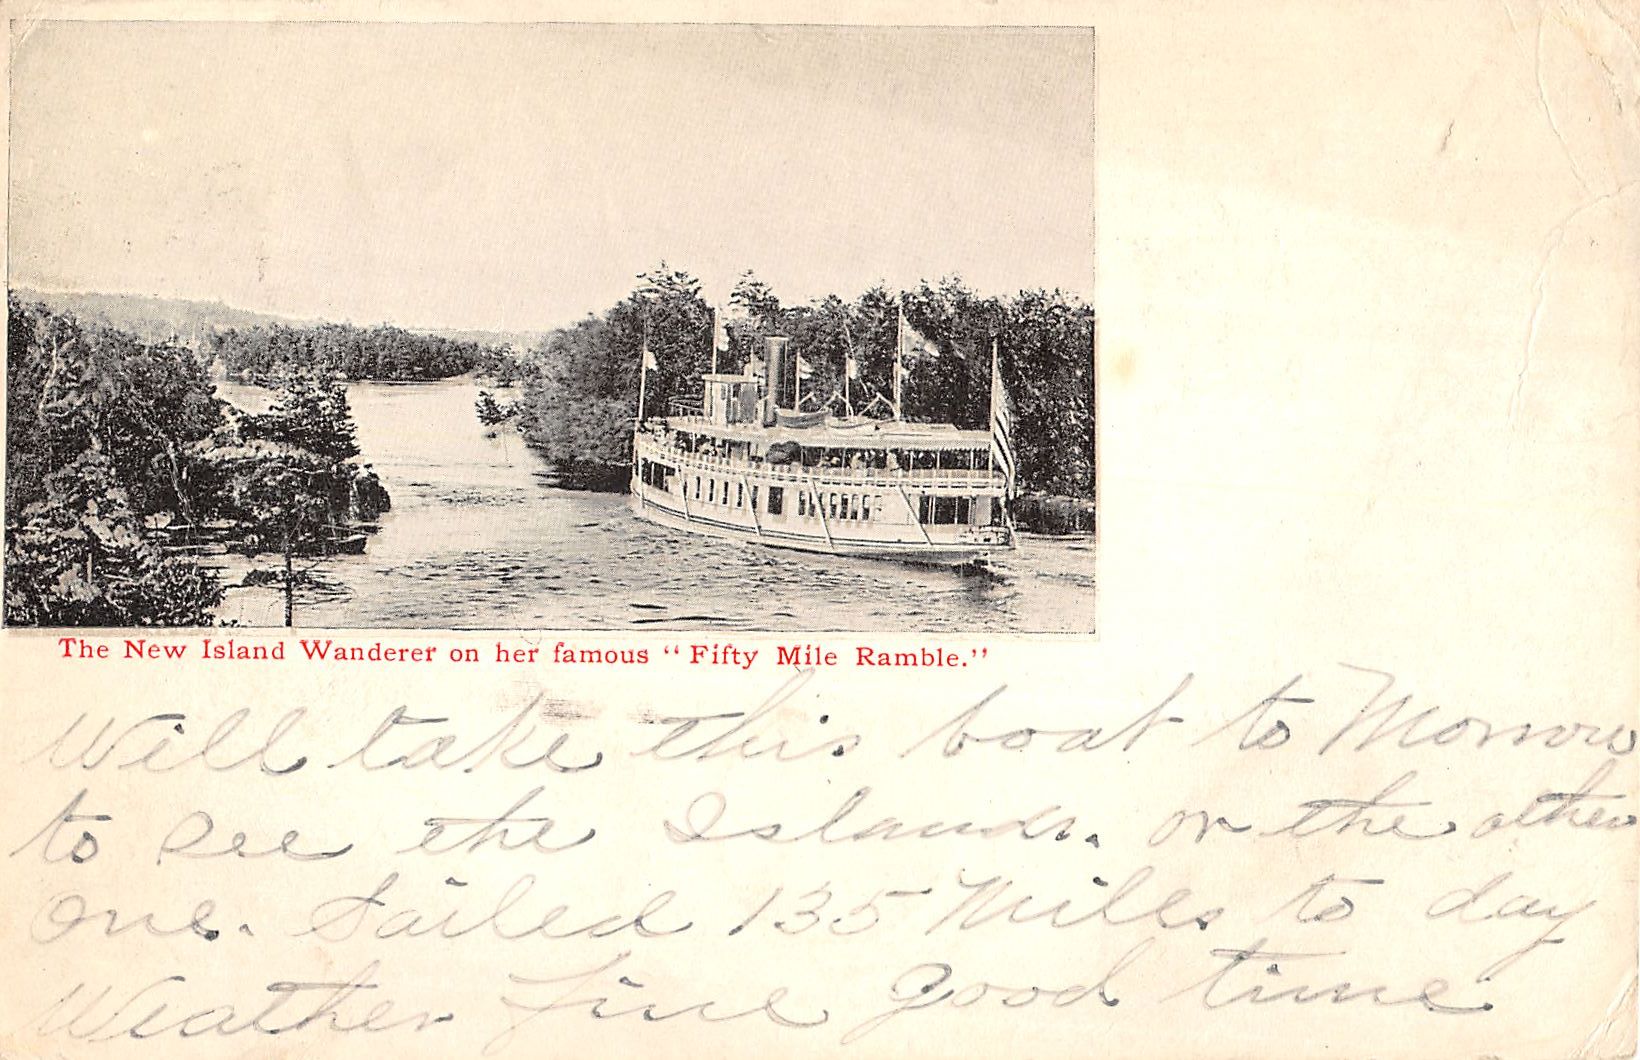 The New Island Wanderer on her famous "Fifty Mile Ramble."
Will take this boat to Morrow
to see the Islands. or the other
one. Sailed 135 Miles to day
Weather fine good time